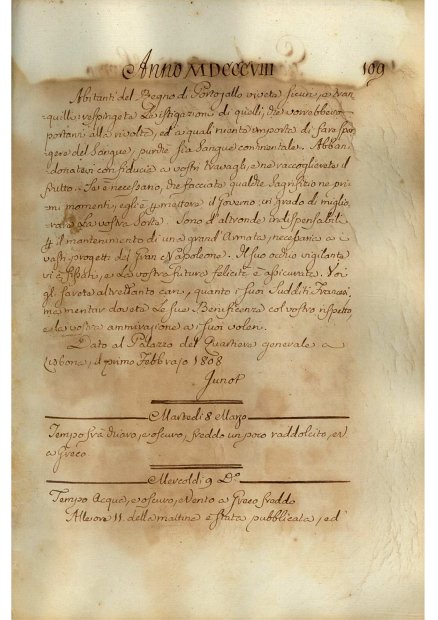 Anno MDCCCVIII 109
Abitanti del Regno di Portogallo vivete sicuri, e tran-
quilli respingete le istigazioni di quelli, che vorrebbero
portarvi alla rivolta, ed a quali niente importa di fare spar
gere del Sangue, purchè sia Sangue continentale. Abban
donatevi con fiducia a vostri travagli, e ne raccoglierete il
frutto. Se è necessario, che facciate qualche Sagrifizio ne pri
mi momenti, egli è mettere il Governo in grado di miglio
rare La vostra Sorte. Sono d'altronde indispensabili
p il mantenimento di una grand'Armata, necessaria a i
vasti progetti del Gran Napoleone. Il suo occhio vigilante
vi è fissato, e La vostra futura felicità è assicurata. Voi
gli sarete altrettanto cari, quanto i suoi Sudditi Francesi
ma mentar dovete Le sue Beneficenze col vostro rispetto
e la vostra ammirazione a i suoi voleri.
Dato al Palazzo del Quartiere generale a
Lisbona, il primo Febbrajo 1808
Junot
Martedì 8 Marzo
Tempo oscuro, freddo un poco raddolcito, ed
a Greco
Mercoldì 9 Do.
Tempo Acqua, e oscuro, e Vento a Greco freddo
Alle ore 11. della mattina è stata pubblicata, ed